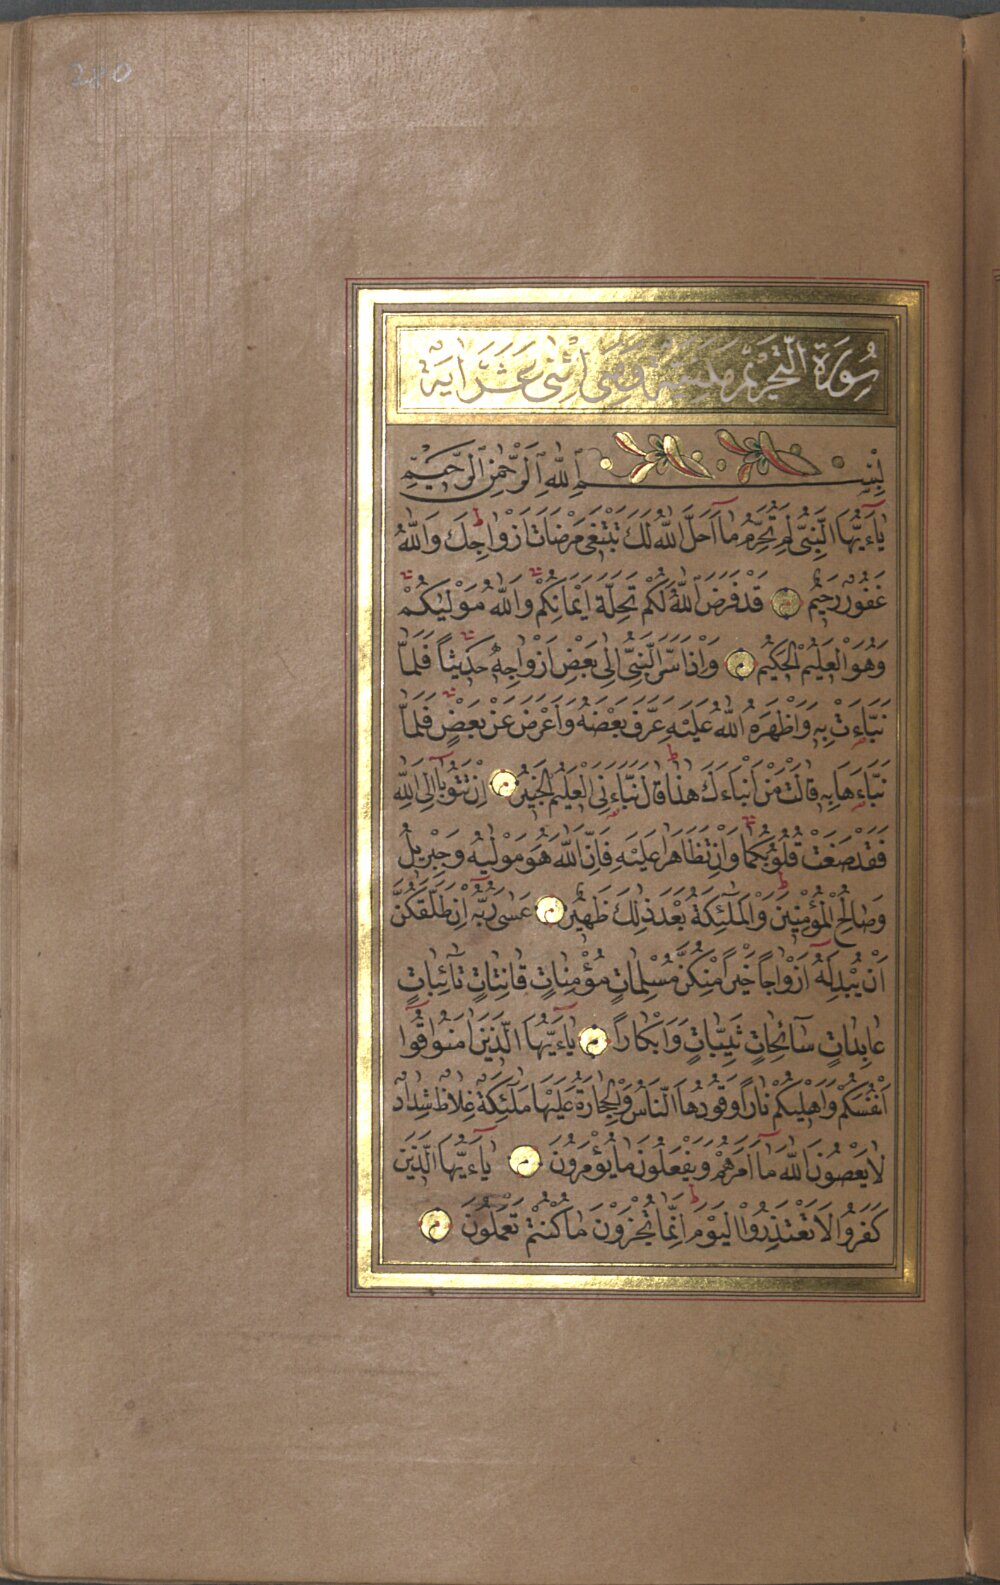 280
سُورَةُ التَّحْرِيْمِ مَدَنِيَّةٌ وَهِىَ اثْنٰى عَشَرَ اٰيَةً
بِسْمِ اللّٰهِ الرَّحْمٰنِ الرَّحِيْمِ
يَاءَيُّهَا النَّبِىُّ لِمَ تُحَرِّمُ مَا اَحَلَّ اللّٰهُ لَكَ تَبْتَغٖى مَرْضَاتَ اَزْوَاجِكَ وَاللّٰهُ
غَفُورٌ رَحِيْمٌ قَدْ فَرَضَ اللّٰهُ لَكُمْ تَحِلَّةَ اَيْمَانِكُمْ وَاللّٰهُ مَوْلٰيكُمْ
وَهُوَ الْعَلِيْمُ الْحَكِيْمُ وَاِذْ اَسَرَّ النَّبِىُّ اِلٰى بَعْضِ اَزْوَاجِهٖ حَدٖيثًا فَلَمَّا
نَبَّاَءتْ بِهٖ وَاَظْهَرَهُ اللّٰهُ عَلَيْهِ عَرَّفَ بَعْضَهُ وَاَعْرَضَ عَنْ بَعْضٍ فَلَمَّا
نَبَّاَءهَا بِهٖ قَالَتْ مَنْ اَنْبَاءَكَ هٰذَا قَالَ نَبَّاَءنِىَ الْعَلِيْمُ الْخَبِيْرُ اِنْ تَتُوبَا اِلَى اللّٰهِ
فَقَدْ صَغَتْ قُلُوبُكُمَا وَاِنْ تَظَاهَرَا عَلَيْهِ فَاِنَّ اللّٰهَ هُوَ مَوْلٰيهُ وَجِبْرٖيلُ
وَصَالِحُ الْمُؤْمِنٖينَ وَالْمَلٰٓئِكَةُ بَعْدَ ذٰلِكَ ظَهٖيرٌ عَسٰى رَبُّهُ اِنْ طَلَّقَكُنَّ
اَنْ يُبْدِلَهُ اَزْوَاجًا خَيْرًا مِنْكُنَّ مُسْلِمَاتٍ مُؤْمِنَاتٍ قَانِتَاتٍ تَآئِبَاتٍ
عَابِدَاتٍ سَآئِحَاتٍ ثَيِّبَاتٍ وَاَبْكَارًا يَاءَيُّهَا الَّذٖينَ اٰمَنُوا قُوا
اَنْفُسَكُمْ وَاَهْلٖيكُمْ نَارًا وَقُودُهَا النَّاسُ وَالْحِجَارَةُ عَلَيْهَا مَلٰٓئِكَةٌ غِلَاظٌ شِدَادٌ
لَا يَعْصُونَ اللّٰهَ مَا اَمَرَهُمْ وَيَفْعَلُونَ مَا يُؤْمَرُونَ يَاءَيُّهَا الَّذٖينَ
كَفَرُوا لَا تَعْتَذِرُوا الْيَوْمَ اِنَّمَا تُجْزَوْنَ مَا كُنْتُمْ تَعْمَلُونَ